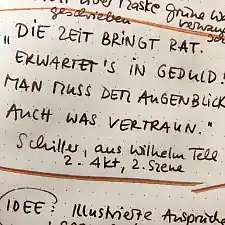 über Maske grüne
geschrieben
„DIE ZEIT BRINGT RAT.
ERWARTET'S IN GEDULD!
MAN MUSS DEM AUGENBLICK
AUCH WAS VERTRAUN."
Schiller, aus Wilhelm Tell
2. Akt, 2. Szene
IDEE: Illustrierte Ansprüche